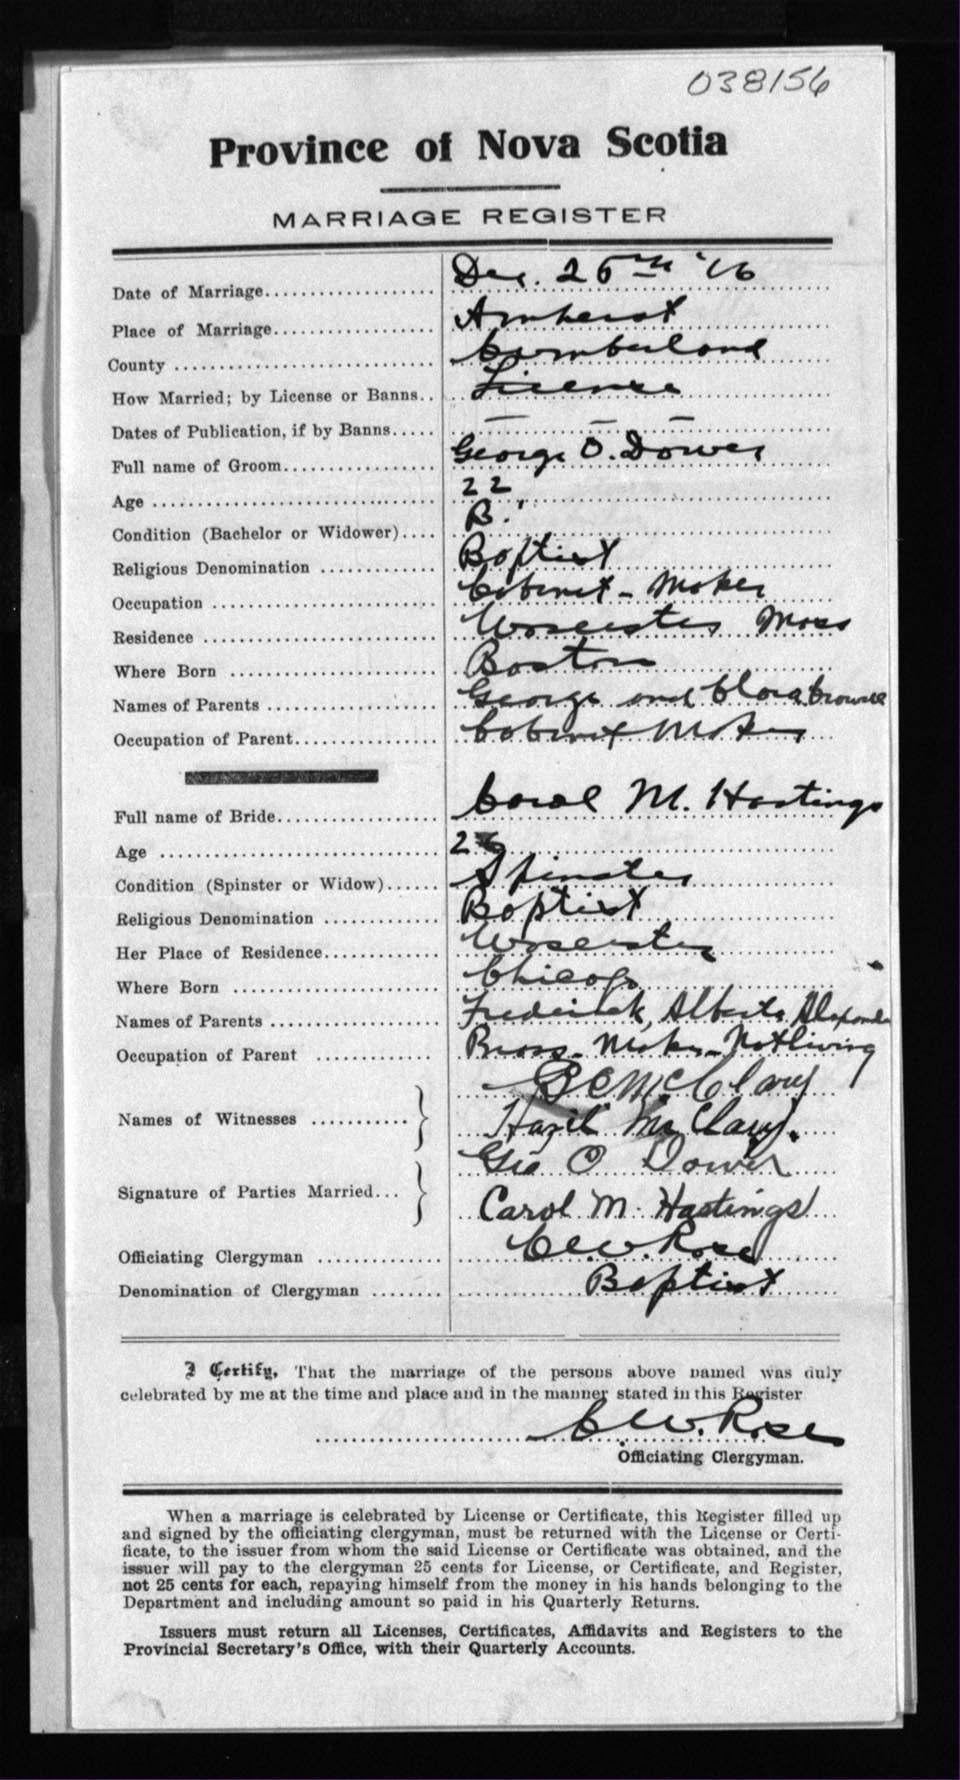 038156
Province of Nova Scotia
MARRIAGE REGISTER
Date of Marriage Dec. 25th '16
Place of Marriage Amherst
County Cumberland
How Married; by License or Banns License
Dates of Publication, if by Banns — — —
Full name of Groom George O. Dower
Age 22
Condition (Bachelor or Widower) B.
Religious Denomination Baptist
Occupation Cabinet-Maker
Residence Worcester Mass
Where Born Boston
Names of Parents George and Clara
Occupation of Parent Cabinet Maker
Full name of Bride Carol M. Hastings
Age
Condition (Spinster or Widow) Spinster
Religious Denomination Baptist
Her Place of Residence Worcester
Where Born Chicago
Names of Parents Frederick, Alberta
Occupation of Parent Brass-Maker-Not living
Names of Witnesses McClary
Hazel McClary.
Signature of Parties Married Geo O Dower
Carol M. Hastings
Officiating Clergyman C.W. Rose
Denomination of Clergyman Baptist
I Certify, That the marriage of the persons above named was duly
celebrated by me at the time and place and in the manner stated in this Register
C.W. Rose
Officiating Clergyman.
When a marriage is celebrated by License or Certificate, this Register filled up
and signed by the officiating clergyman, must be returned with the License or Certi-
ficate, to the issuer from whom the said License or Certificate was obtained, and the
issuer will pay to the clergyman 25 cents for License, or Certificate, and Register,
not 25 cents for each, repaying himself from the money in his hands belonging to the
Department and including amount so paid in his Quarterly Returns.
Issuers must return all Licenses, Certificates, Affidavits and Registers to the
Provincial Secretary's Office, with their Quarterly Accounts.